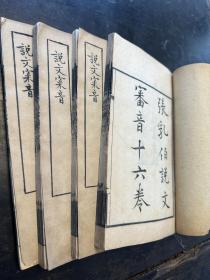 張乳伯說文
審音十六卷
說文審音
說文審音
說文審音